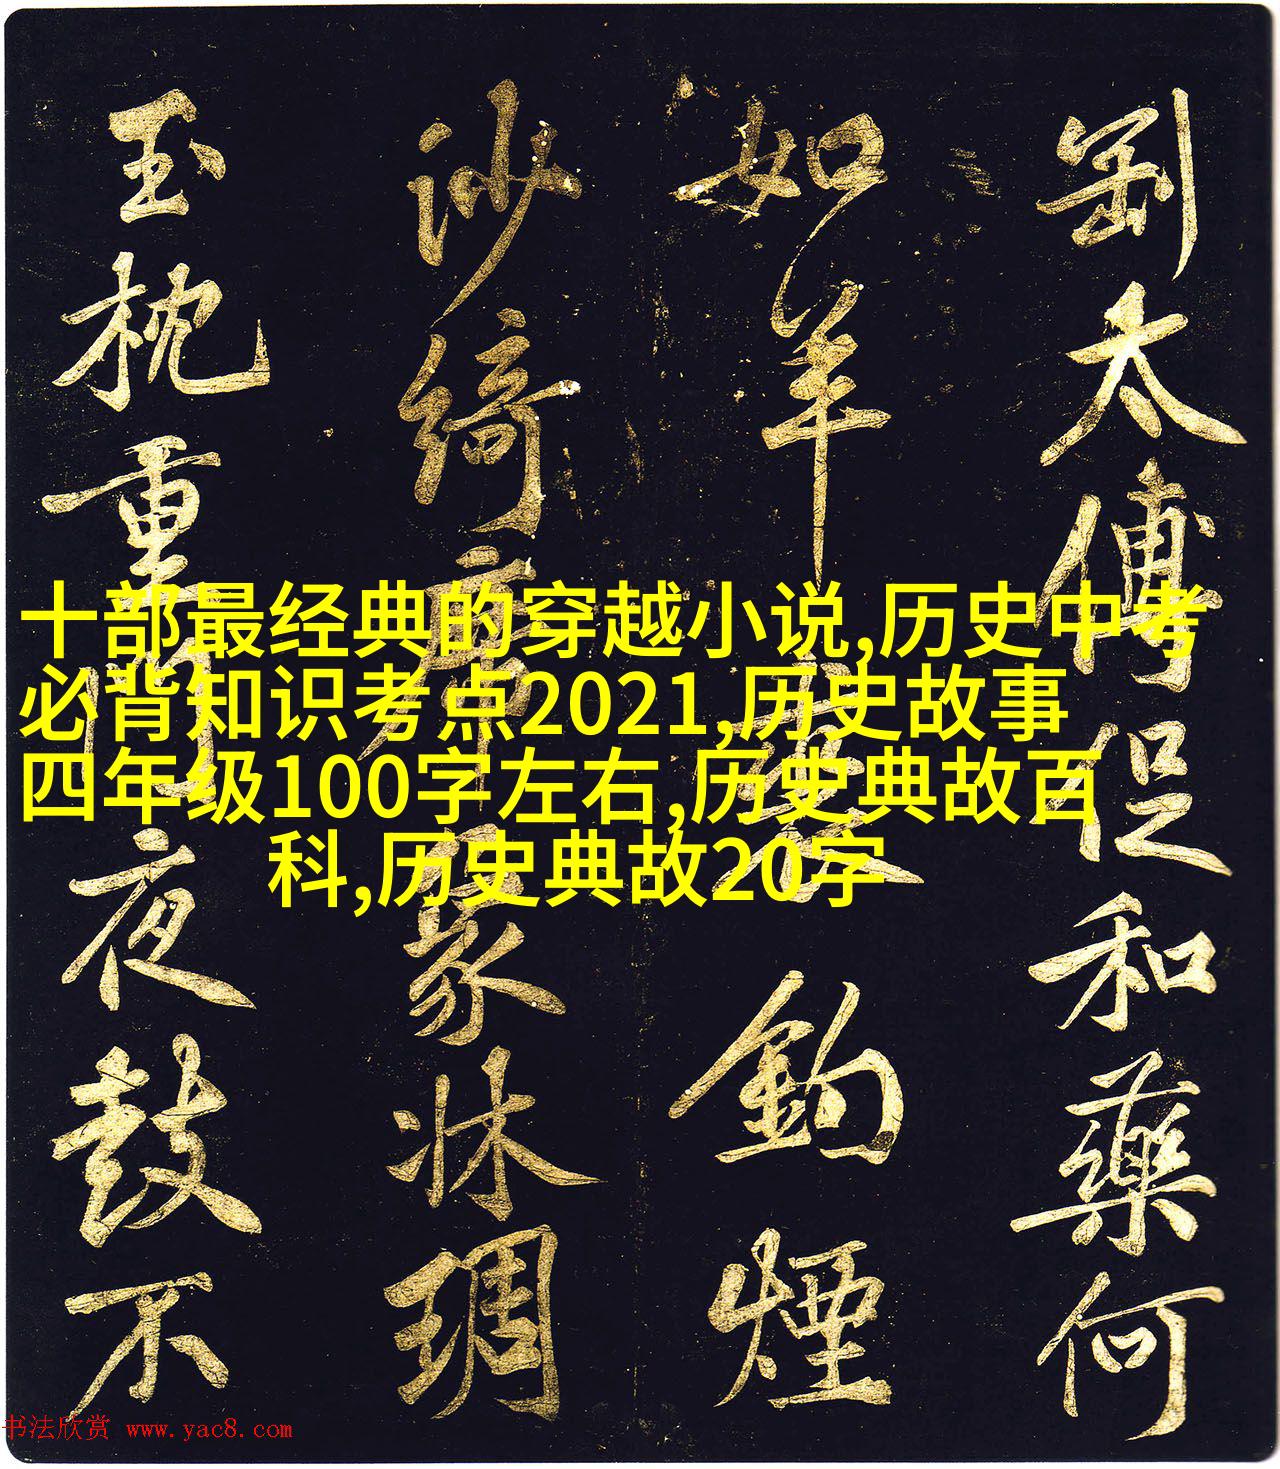 剧太傅促和藥何
如羊
鉤煙
沙綺
家牀琱
玉枕重
夜鼓不
十部最经典的穿越小说,历史中考
必背知识考点2021,历史故事
四年级100字左右,历史典故百
科,历史典故20字
书法欣赏 www.yac8.com